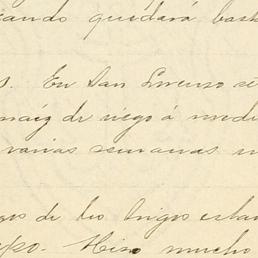 ando quedará bast
s. En San Lorenzo se
maíz de riego á medi
varias semanas
os de los trigos estan
po. Hizo mucho